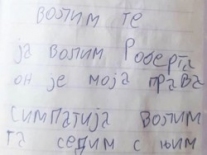 волим те
ја волим Роберта
он је моја права
симпатија волим
га седим с њим